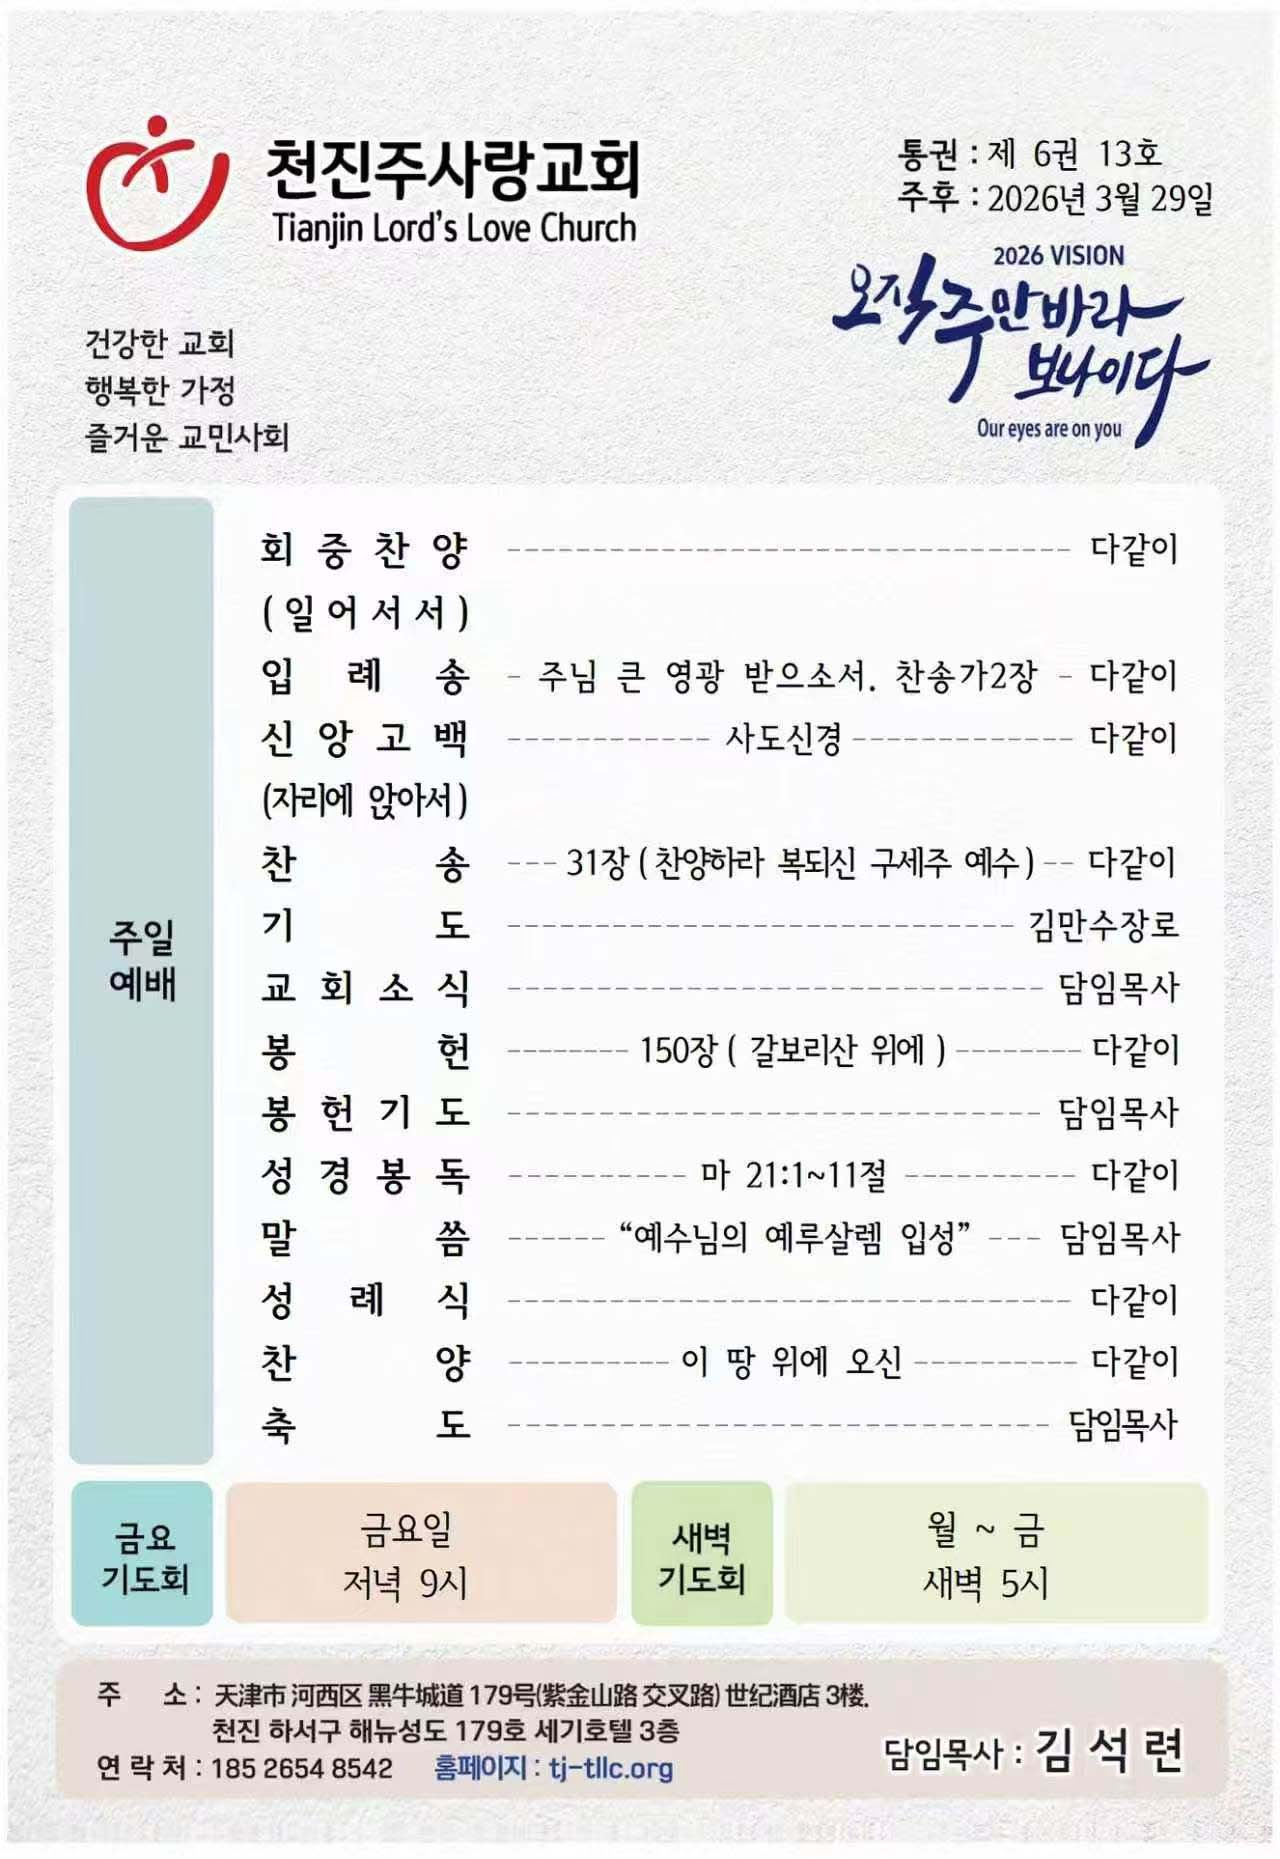 천진주사랑교회
Tianjin Lord's Love Church
통권 : 제 6권 13호
주후 : 2026년 3월 29일
2026 VISION
오직 주만 바라
보나이다
Our eyes are on you
건강한 교회
행복한 가정
즐거운 교민사회
주일
예배
회중찬양 다같이
(일어서서)
입례송 - 주님 큰 영광 받으소서. 찬송가2장 - 다같이
신앙고백 사도신경 다같이
(자리에 앉아서)
찬송 31장 ( 찬양하라 복되신 구세주 예수 ) 다같이
기도 김만수장로
교회소식 담임목사
봉헌 150장 ( 갈보리산 위에 ) 다같이
봉헌기도 담임목사
성경봉독 마 21:1~11절 다같이
말씀 “예수님의 예루살렘 입성” 담임목사
성례식 다같이
찬양 이 땅 위에 오신 다같이
축도 담임목사
금요
기도회
금요일
저녁 9시
새벽
기도회
월 ~ 금
새벽 5시
주 소 : 天津市 河西区 黑牛城道 179号(紫金山路 交叉路) 世纪酒店 3楼.
천진 하서구 해뉴성도 179호 세기호텔 3층
연락처 : 185 2654 8542 홈페이지 : tj-tllc.org
담임목사 : 김석련